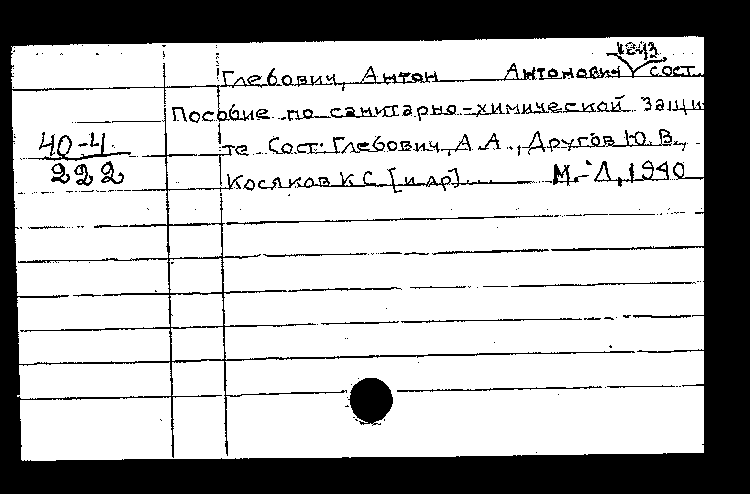 1893
Глебович, Антон Антонович, сост.
Пособие по санитарно-химической защи-
40-4 те Сост: Глебович, А.А., Другов Ю.В.,
222 Косяков К.С. [и др]... М.-Л, 1940